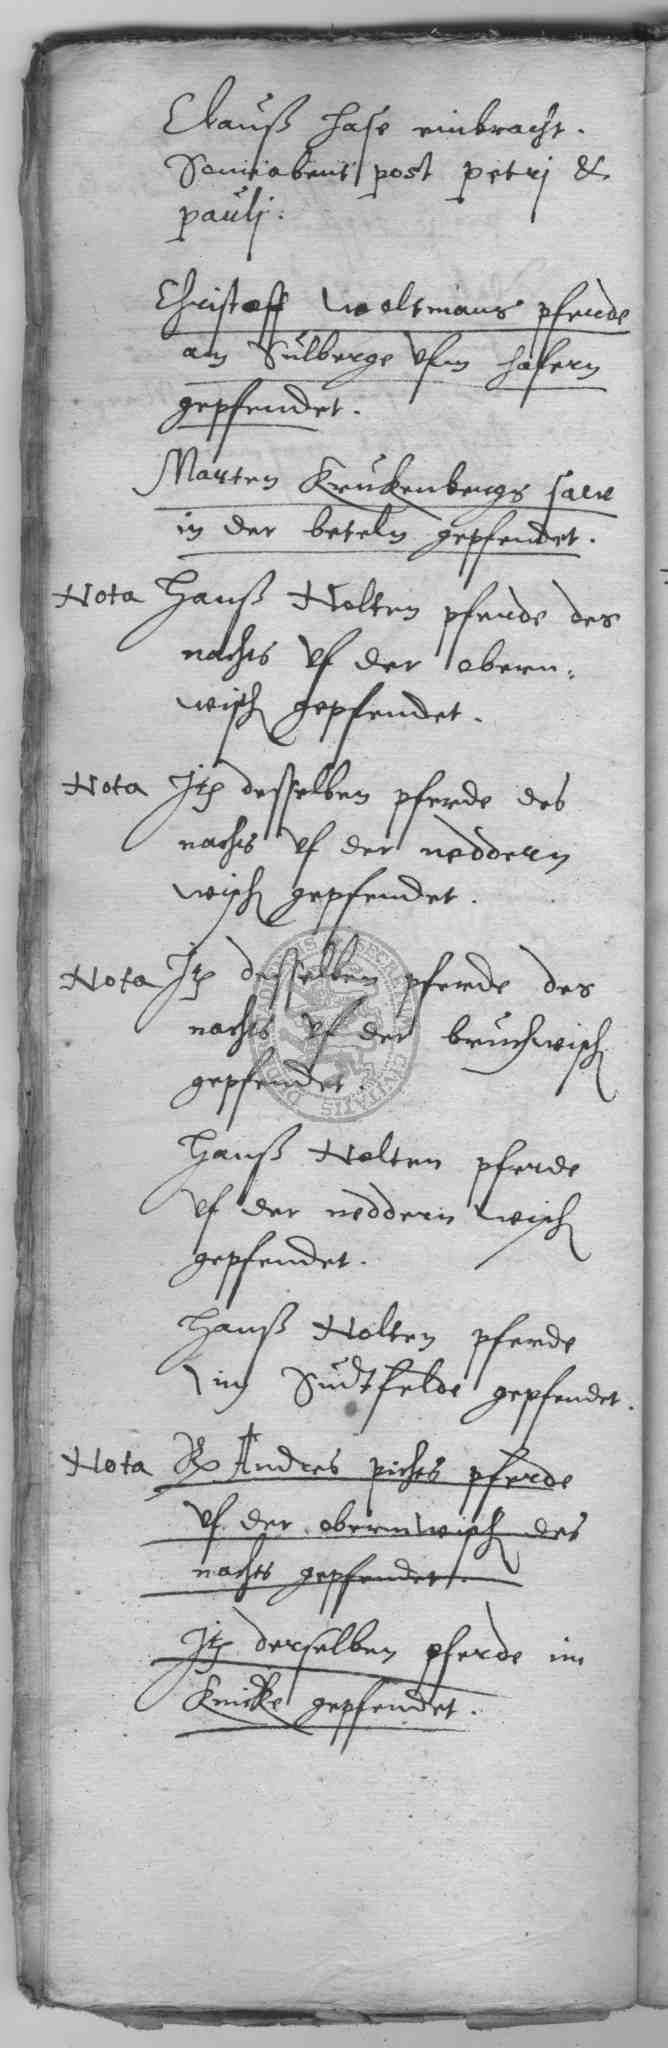 Clauß Hase einbracht.
Sonnabent post petrj &
paulj.
Christoff Woltmans pferde
am Sülberge vfm hafern
gepfendet.
Marten Krukenbergs saw
in der beteln gepfendet.
Nota Hanß Nolten pferde des
nachts vf der obern=
wisch gepfendet.
Nota Jtem desselben pferde des
nachts vf der neddern
wisch gepfendet.
Nota Jtem desselben pferde des
nachts vf der bruchwisch
gepfendet.
Hanß Nolten pferde
vf der neddern wisch
gepfendet.
Hanß Nolten pferde
im Sudtfelde gepfendet.
Nota Andres pichts pferde
vf der obernwisch des
nachts gepfendet.
Jtem derselben pferde im
Knicke gepfendet.